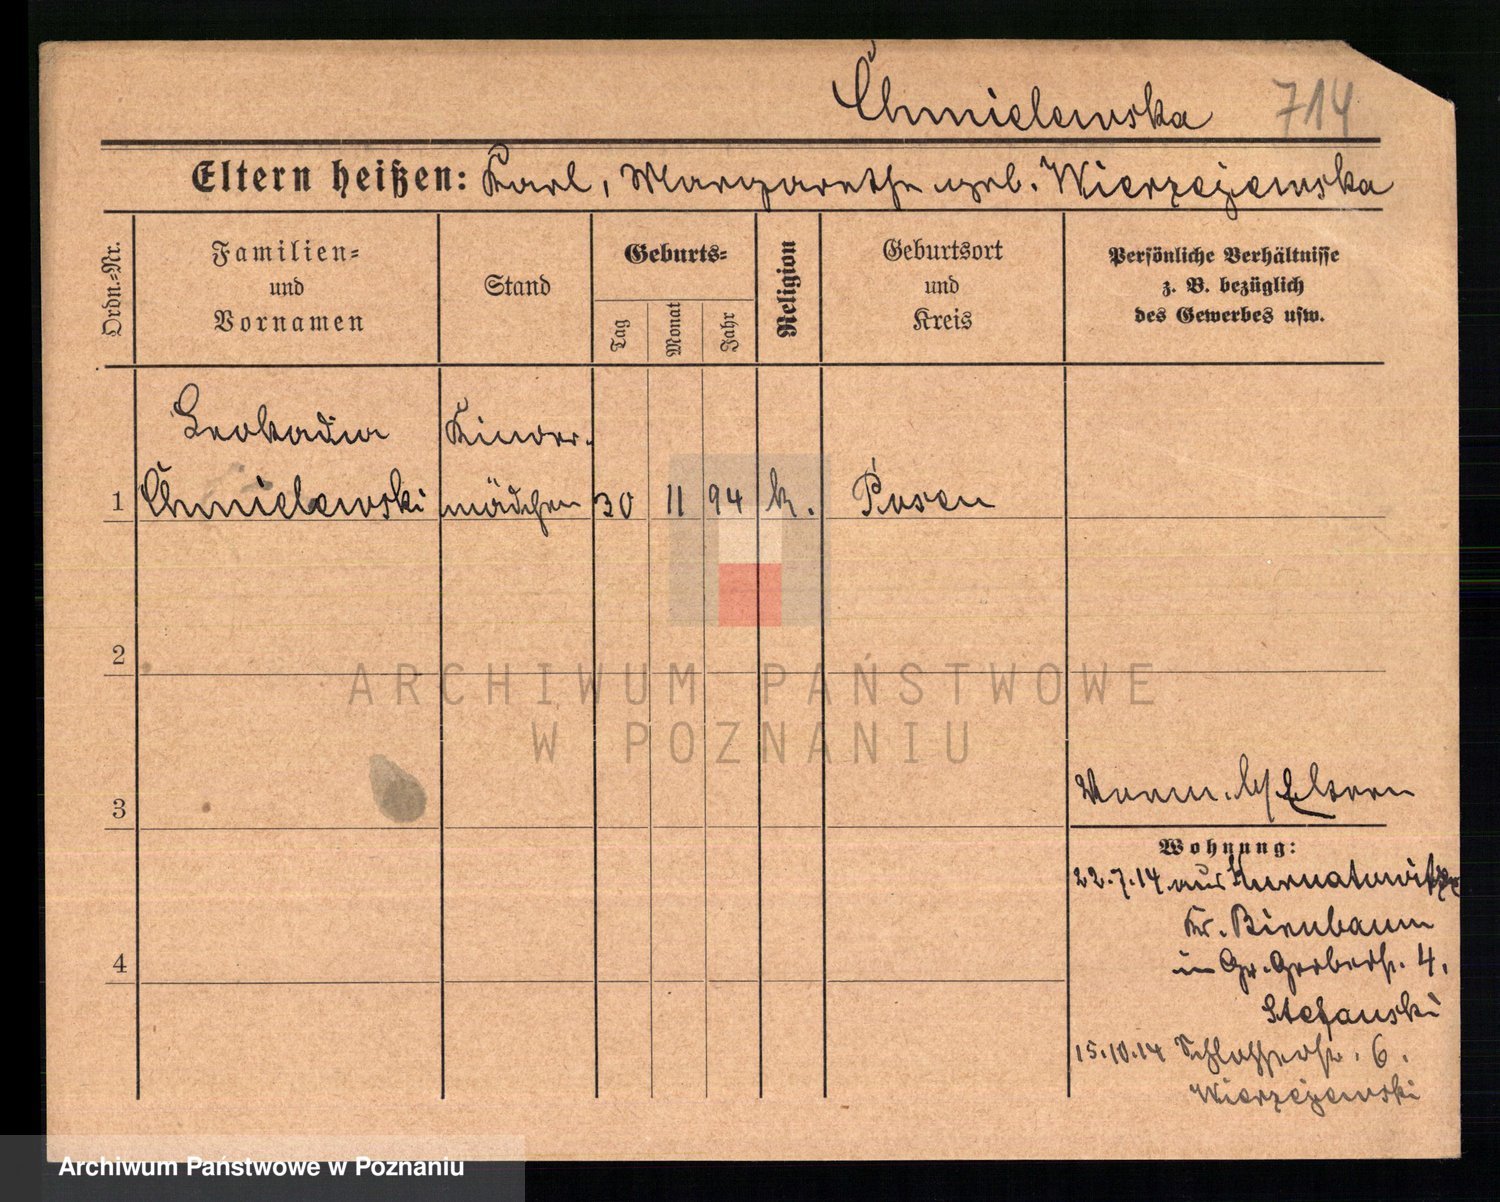 Chmielewska 714
Eltern heißen: Karl, Margarethe geb. Wierzejewska
Ordn.-Nr.
Familien-
und
Vornamen
Stand
Geburts-
Tag
Monat
Jahr
Religion
Geburtsort
und
Kreis
Persönliche Verhältnisse
z. B. bezüglich
des Gewerbes usw.
Leokadia Kinder-
1 Chmielewski mädchen 30 11 94 k. Posen
2
3
4
b/ Eltern
Wohnung:
22.7.14 aus
Kr. Birnbaum
in Gr. Gerberstr. 4.
Stefanski
15.10.14 Schlosserstr. 6.
Wierzejewski
ARCHIWUM PAŃSTWOWE
W POZNANIU
Archiwum Państwowe w Poznaniu